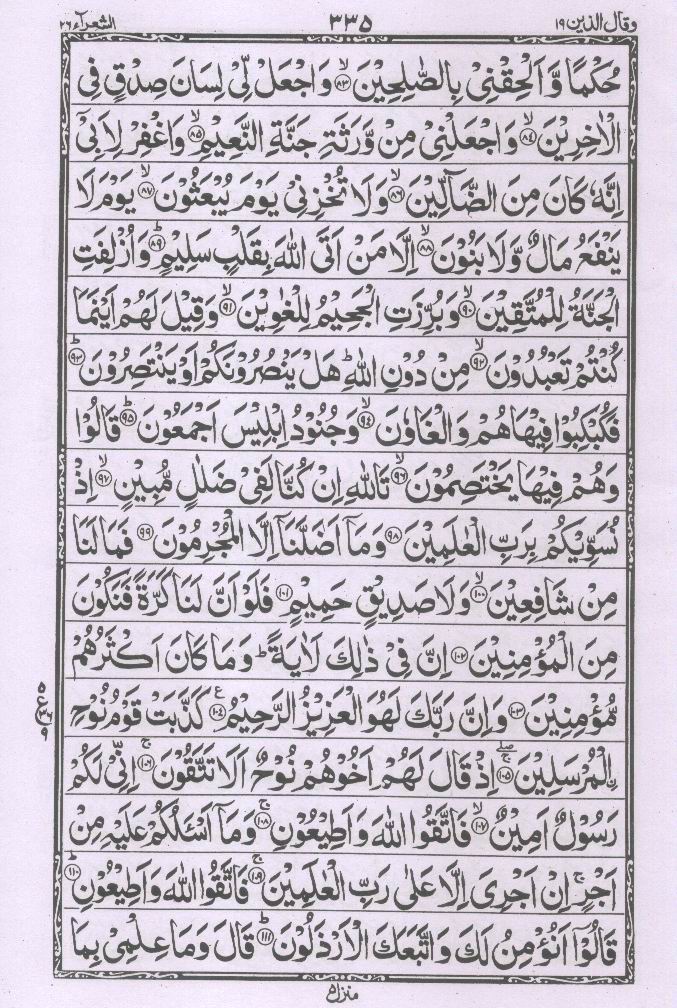 وقال الذين ١٩
٣٣٥
الشعرآء ٢٦
حُكْمًا وَّ اَلْحِقْنِىْ بِالصّٰلِحِيْنَ ۙ﴿۸۳﴾ وَ اجْعَلْ لِّىْ لِسَانَ صِدْقٍ فِى
الْاٰخِرِيْنَ ۙ﴿۸۴﴾ وَ اجْعَلْنِىْ مِنْ وَّرَثَةِ جَنَّةِ النَّعِيْمِ ۙ﴿۸۵﴾ وَاغْفِرْ لِاَبِىْۤ
اِنَّهٗ كَانَ مِنَ الضَّآلِّيْنَ ۙ﴿۸۶﴾ وَلَا تُخْزِنِىْ يَوْمَ يُبْعَثُوْنَ ۙ﴿۸۷﴾ يَوْمَ لَا
يَنْفَعُ مَالٌ وَّلَا بَنُوْنَ ۙ﴿۸۸﴾ اِلَّا مَنْ اَتَى اللّٰهَ بِقَلْبٍ سَلِيْمٍ ؕ﴿۸۹﴾ وَاُزْلِفَتِ
الْجَنَّةُ لِلْمُتَّقِيْنَ ۙ﴿۹۰﴾ وَبُرِّزَتِ الْجَحِيْمُ لِلْغٰوِيْنَ ۙ﴿۹۱﴾ وَقِيْلَ لَهُمْ اَيْنَمَا
كُنْتُمْ تَعْبُدُوْنَ ۙ﴿۹۲﴾ مِنْ دُوْنِ اللّٰهِ ؕ هَلْ يَنْصُرُوْنَكُمْ اَوْ يَنْتَصِرُوْنَ ؕ﴿۹۳﴾
فَكُبْكِبُوْا فِيْهَا هُمْ وَالْغَاوٗنَ ۙ﴿۹۴﴾ وَجُنُوْدُ اِبْلِيْسَ اَجْمَعُوْنَ ؕ﴿۹۵﴾ قَالُوْا
وَهُمْ فِيْهَا يَخْتَصِمُوْنَ ۙ﴿۹۶﴾ تَاللّٰهِ اِنْ كُنَّا لَفِىْ ضَلٰلٍ مُّبِيْنٍ ۙ﴿۹۷﴾ اِذْ
نُسَوِّيْكُمْ بِرَبِّ الْعٰلَمِيْنَ ﴿۹۸﴾ وَمَاۤ اَضَلَّنَاۤ اِلَّا الْمُجْرِمُوْنَ ﴿۹۹﴾ فَمَا لَنَا
مِنْ شَافِعِيْنَ ۙ﴿۱۰۰﴾ وَلَا صَدِيْقٍ حَمِيْمٍ ﴿۱۰۱﴾ فَلَوْ اَنَّ لَنَا كَرَّةً فَنَكُوْنَ
مِنَ الْمُؤْمِنِيْنَ ﴿۱۰۲﴾ اِنَّ فِىْ ذٰلِكَ لَاٰيَةً ؕ وَمَا كَانَ اَكْثَرُهُمْ
مُّؤْمِنِيْنَ ﴿۱۰۳﴾ وَاِنَّ رَبَّكَ لَهُوَ الْعَزِيْزُ الرَّحِيْمُ ﴿۱۰۴﴾ كَذَّبَتْ قَوْمُ نُوْحِ
اِ۟لْمُرْسَلِيْنَ ﴿۱۰۵﴾ اِذْ قَالَ لَهُمْ اَخُوْهُمْ نُوْحٌ اَلَا تَتَّقُوْنَ ۚ﴿۱۰۶﴾ اِنِّىْ لَكُمْ
رَسُوْلٌ اَمِيْنٌ ۙ﴿۱۰۷﴾ فَاتَّقُوا اللّٰهَ وَ اَطِيْعُوْنِ ۚ﴿۱۰۸﴾ وَمَاۤ اَسْـَٔلُكُمْ عَلَيْهِ مِنْ
اَجْرٍ ۚ اِنْ اَجْرِىَ اِلَّا عَلٰى رَبِّ الْعٰلَمِيْنَ ۚ﴿۱۰۹﴾ فَاتَّقُوا اللّٰهَ وَ اَطِيْعُوْنِ ؕ﴿۱۱۰﴾
قَالُوْۤا اَنُؤْمِنُ لَكَ وَ اتَّبَعَكَ الْاَرْذَلُوْنَ ؕ﴿۱۱۱﴾ قَالَ وَمَا عِلْمِىْ بِمَا
منزل ۵